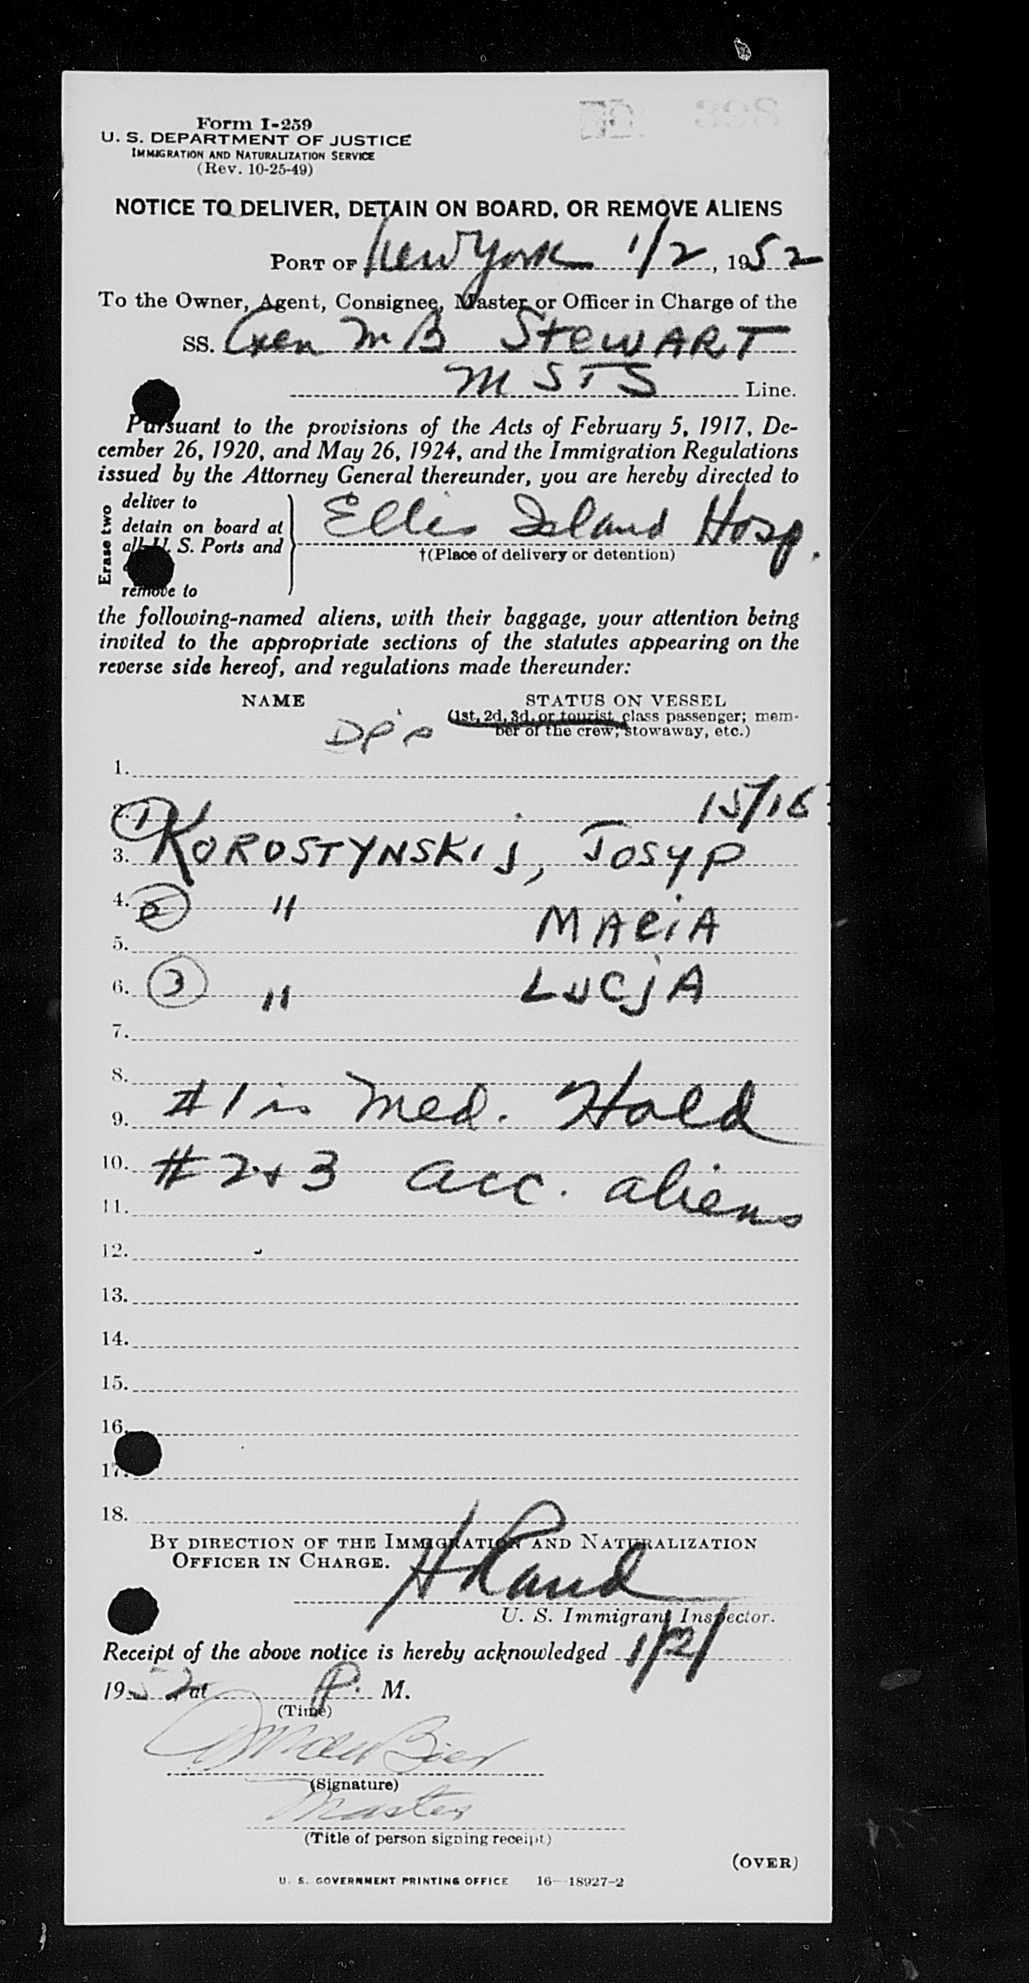 Form I-259
U. S. DEPARTMENT OF JUSTICE
IMMIGRATION AND NATURALIZATION SERVICE
(Rev. 10-25-49)
NOTICE TO DELIVER, DETAIN ON BOARD, OR REMOVE ALIENS
PORT OF New York 1/2, 1952
To the Owner, Agent, Consignee, Master or Officer in Charge of the
SS. Gen M B STEWART
MSTS Line.
Pursuant to the provisions of the Acts of February 5, 1917, De-
cember 26, 1920, and May 26, 1924, and the Immigration Regulations
issued by the Attorney General thereunder, you are hereby directed to
Erase two
deliver to
detain on board at
all U. S. Ports and
remove to
Ellis Island Hosp.
†(Place of delivery or detention)
the following-named aliens, with their baggage, your attention being
invited to the appropriate sections of the statutes appearing on the
reverse side hereof, and regulations made thereunder:
NAME STATUS ON VESSEL
(1st, 2d, 3d, or tourist class passenger; mem-
ber of the crew; stowaway, etc.)
DP's
1.
2. 15/16
3. 1 KOROSTYNSKIJ, JOSYP
4. 2 " MARIA
5.
6. 3 " LUCJA
7.
8.
9. #1 is Med. Hold
10. #2 + 3 acc. aliens
11.
12.
13.
14.
15.
16.
17.
18.
BY DIRECTION OF THE IMMIGRATION AND NATURALIZATION
OFFICER IN CHARGE.
H Rand
U. S. Immigrant Inspector.
Receipt of the above notice is hereby acknowledged 1/2/
1952 at P. M.
(Time)
(Signature)
Master
(Title of person signing receipt)
(OVER)
U. S. GOVERNMENT PRINTING OFFICE 16—18927-2